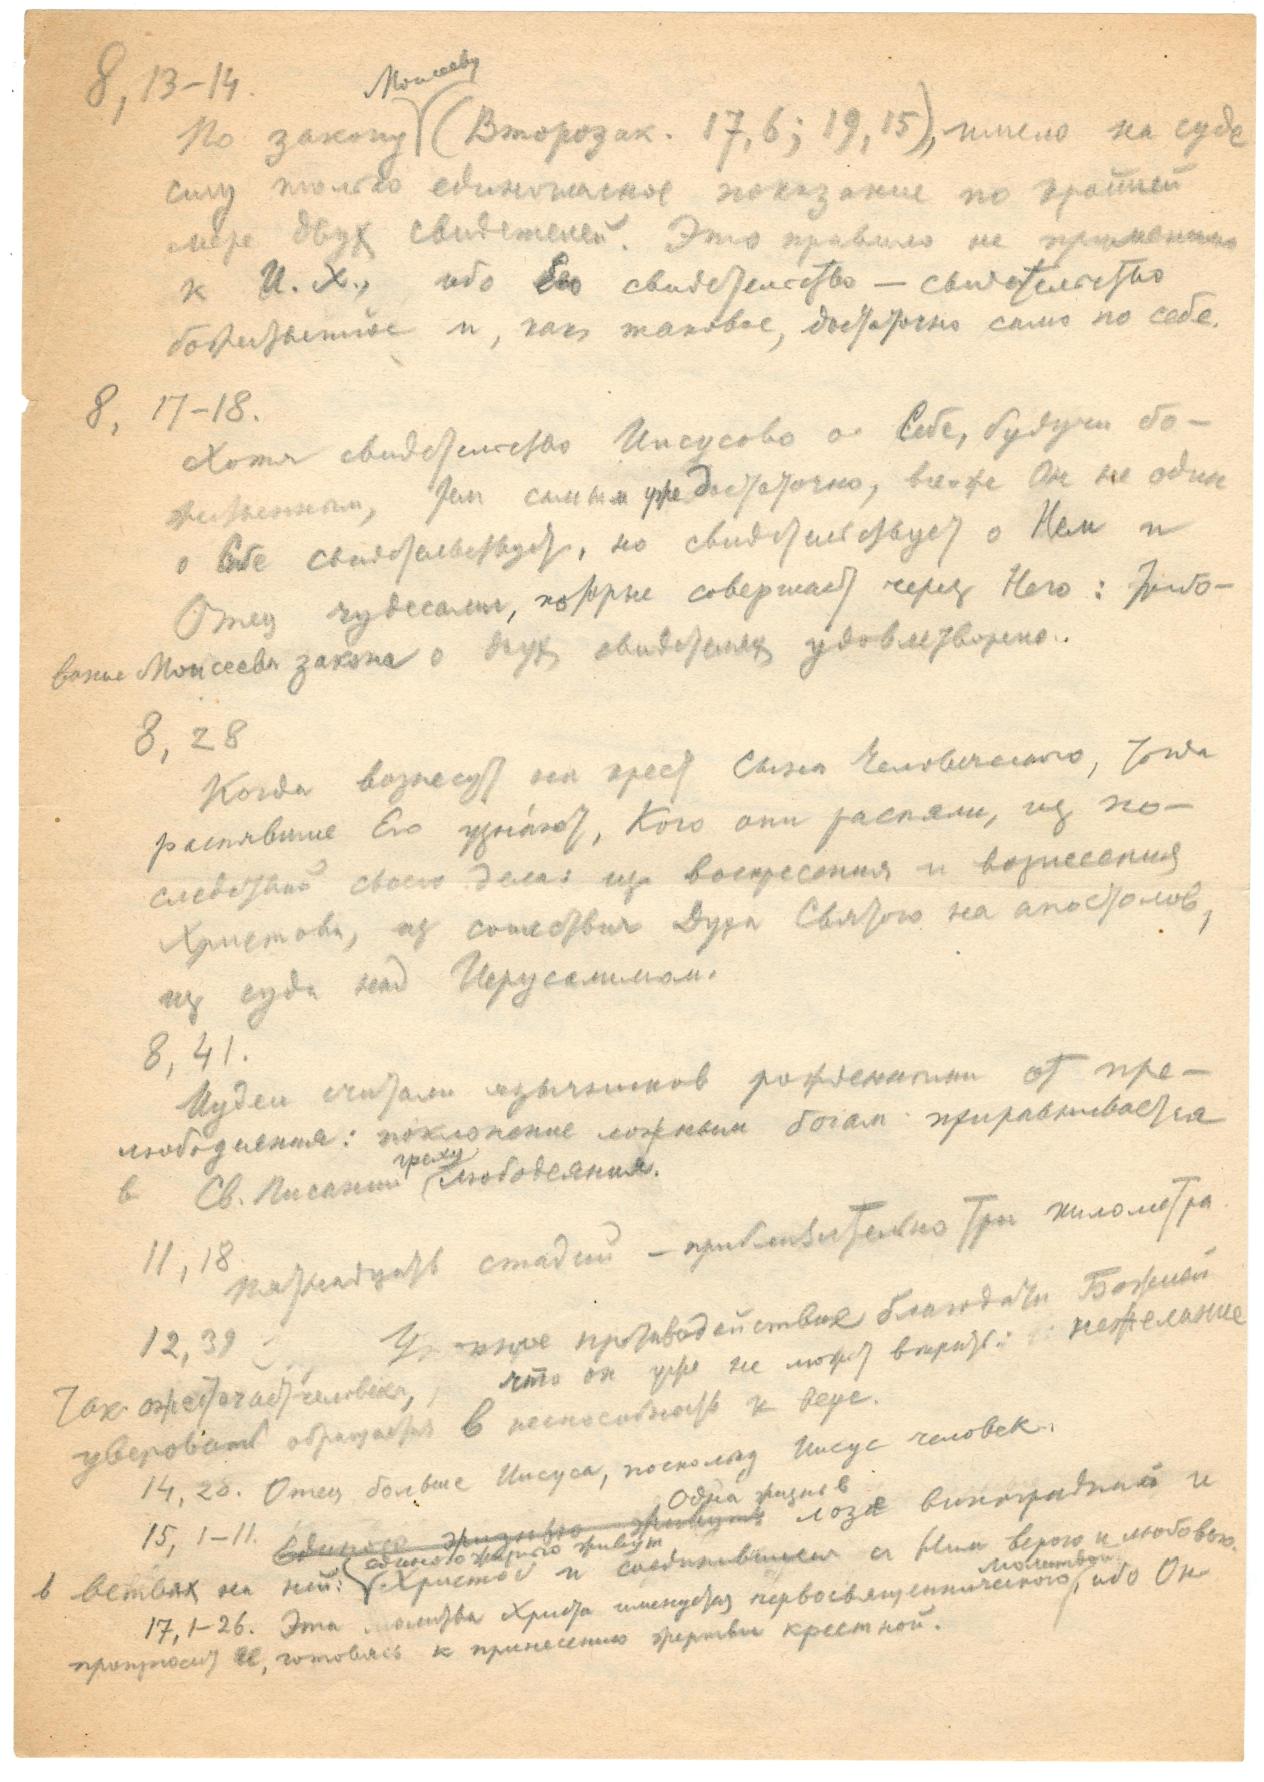 8, 13–14.
Моисееву
По закону (Второзак. 17,6; 19,15), имело на суде
силу только единогласное показание по крайней
мере двух свидетелей. Это правило не применимо
к И. Х., ибо Его свидетельство — свидетельство
божественное и, как таковое, достаточно само по себе.
8, 17–18.
Хотя свидетельство Иисусово о Себе, будучи бо-
жественным, тем самым уже достаточно, все же Он не один
о Себе свидетельствует, но свидетельствует о Нем и
Отец чудесами, которые совершает через Него: требо-
вание Моисеева закона о двух свидетелях удовлетворено.
8, 28
Когда вознесут на крест Сына Человеческого, тогда
распявшие Его узнáют, Кого они распяли, из по-
следствий своего дела: из воскресения и вознесения
Христова, из сошествия Духа Святого на апостолов,
из суда над Иерусалимом.
8, 41.
Иудеи считали язычников рожденными от пре-
любодеяния: поклонение ложным богам приравнивается
в Св. Писании греху любодеяния.
11, 18
Пятнадцать стадий — приблизительно три километра.
12, 39 противодействие благодати Божией
так ожесточает человека, что он уже не может верить: нежелание
уверовать обращается в неспособность к вере.
14, 28. Отец больше Иисуса, поскольку Иисус человек.
Одна жизнь в
15, 1–11. Единою жизнью живут лозе виноградной и
единою жизнью живут
в ветвях на ней: Христос и соединившиеся с Ним верою и любовью.
молитвой
17, 1–26. Эта молитва Христа именуется первосвященнической, ибо Он
произносит ее, готовясь к принесению жертвы крестной.